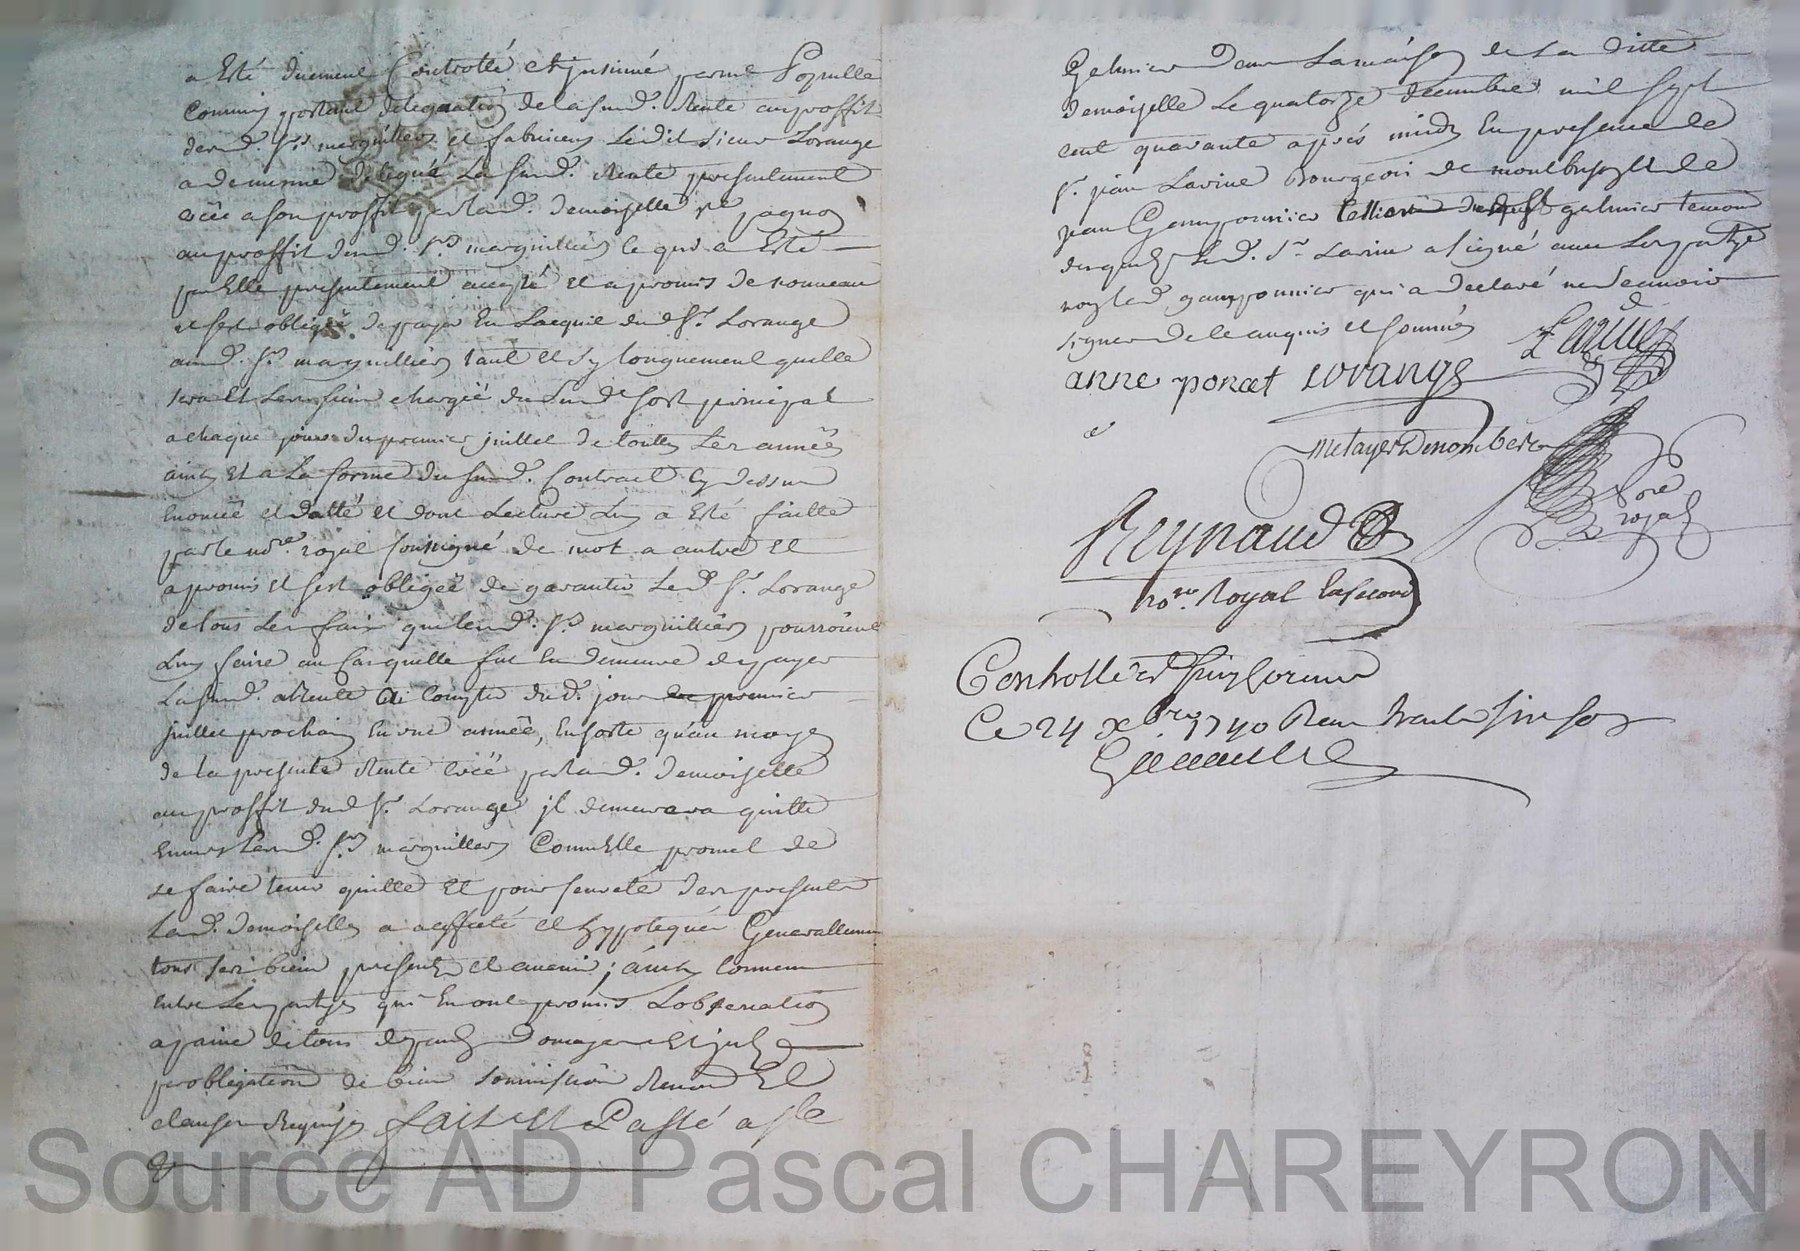 a Esté duement Controllé et Insinué par me Popullé
Commis portant delegation de la susd. Rente au proffit
desd. Srs marguilliers et fabriciens Ledit Sieur Lorange
a de mesme delegué La susd. Rente presentement
créée a son proffit par lad. Demoiselle
au proffit desd. Srs marguilliers le qui a Esté
par Elle presentement accepté et a promis de nouveau
et sest obligée de payer En Lacquit dud Sr. Lorange
aud. Srs marguilliers tant et sy longuement quelle
sera et Les siens chargée du susd sort principal
a chaque jour du premier juillet de toutes Les années
ainsy et a La forme du susd. Contract Cy dessus
Enoncée et datté et dont Lecture Luy a Esté faitte
par le nore. royal soussigné de mot a autre et
a promis et sest obligée de garantir Led Sr. Lorange
de tous Les frais que lesd. Srs marguilliers pourroient
Luy faire au cas quelle fut En demeure de payer
La susd. Rente a Compter dud. jour premier
juillet prochain En une année, En sorte qu'au moyen
de la presente Rente créée par lad. Demoiselle
au proffit dud Sr. Lorange il demeurera quitte
Envers Lesd. Srs marguilliers Comme Elle promet de
Le faire tenir quitte et pour seureté des presentes
Lad. Demoiselle a affecté et hypotequée Generallement
tous ses biens presents et avenir; ainsy Convenu
Entre Les partyes qui En ont promis Lobservation
a paine de tous despands Domages et
par obligation de biens soumission Renon Et
clauses Requises fait et Passé a St
Galmier dans La maison de La ditte
Demoiselle Le quatorze decembre mil sept
cent quarante après midy En presence de
Sr. jean Lavine Bourgeois de montbrison et de
jean Gamponnier galmier temoins
Led. Sr. Lavine a signé avec Les partyes
non led gamponnier qui a declaré ne scavoir
signer de ce enquis et sommés
Lavine
anne poncet Lorange
Metayer Denombere
Nore
royal
Reynaud
nore. Royal En second
Controllé et
Ce 24 xbre 1740 Reçu trente six sols
Source AD Pascal CHAREYRON